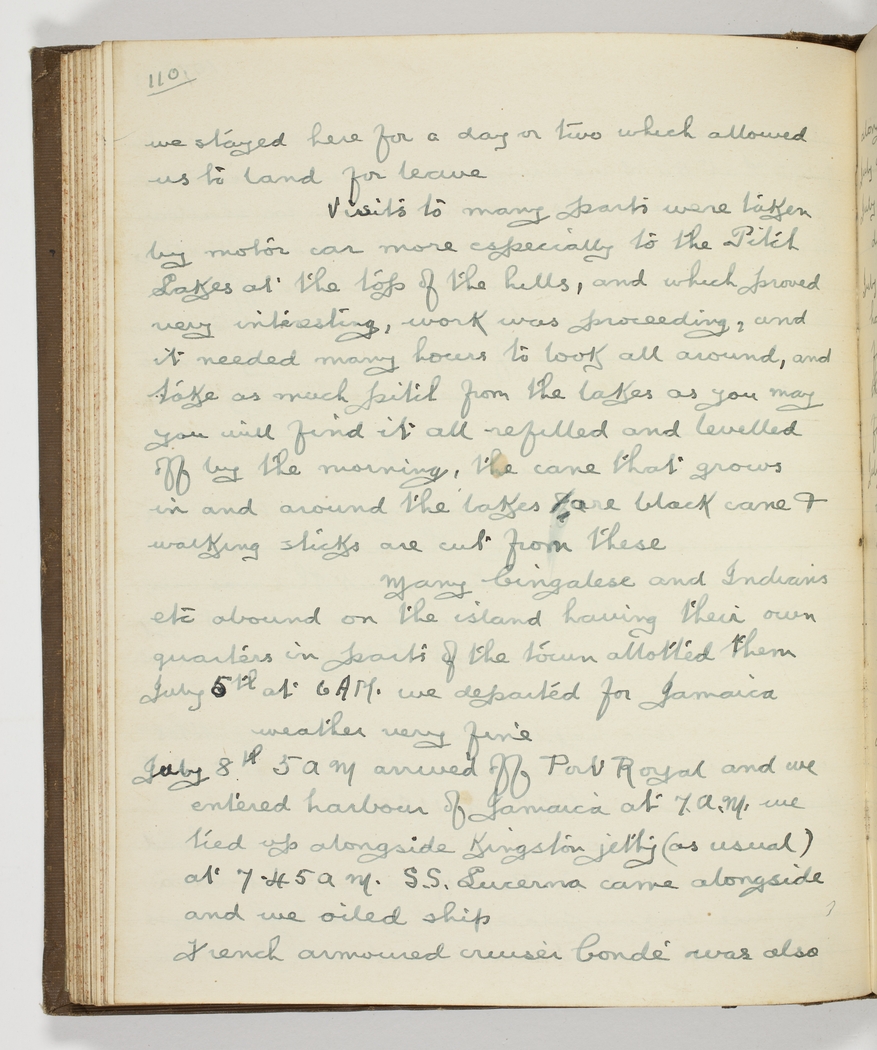 110.
we stayed here for a day or two which allowed
us to land for leave
Visits to many parts were taken
by motor car more especially to the Pitch
Lakes at the top of the hills, and which proved
very interesting, work was proceeding, and
it needed many hours to look all around, and
take as much pitch from the lakes as you may
you will find it all refilled and levelled
off by the morning, the cane that grows
in and around the lakes are black cane &
walking sticks are cut from these
Many Cingalese and Indians
etc abound on the island having their own
quarters in parts of the town allotted them
July 5th at 6 AM. we departed for Jamaica
weather very fine
July 8th 5 a m arrived off Port Royal and we
entered harbour of Jamaica at 7.a.m. we
tied up alongside Kingston jetty (as usual)
at 7-45 a m. S.S. Lucerna came alongside
and we oiled ship
French armoured cruiser Condé was also